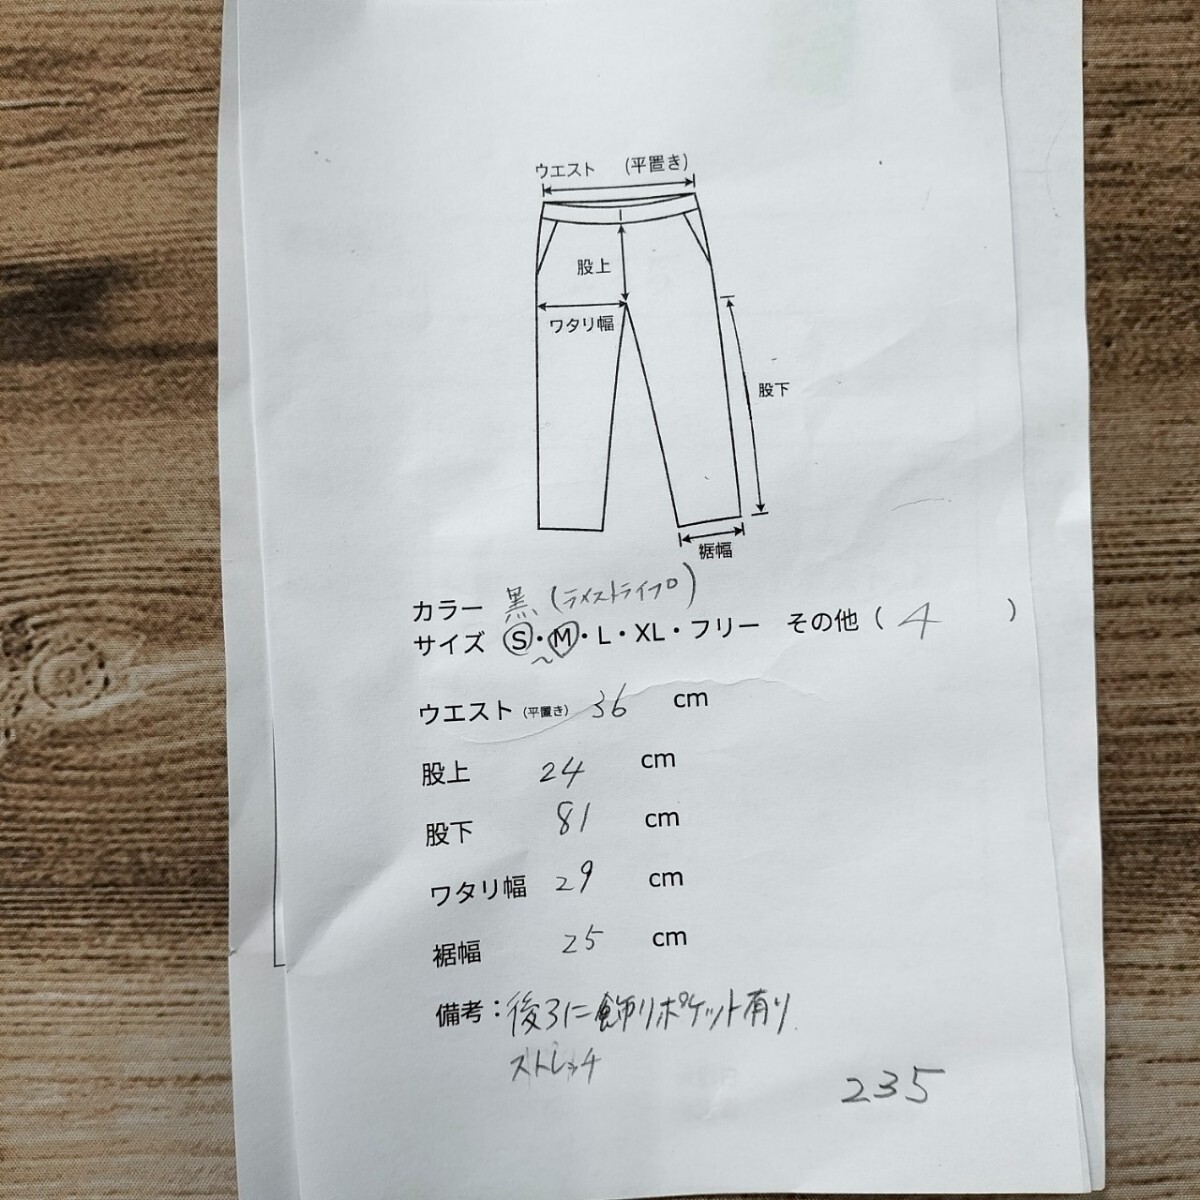 ウエスト (平置き)
股上
ワタリ幅
股下
裾幅
カラー 黒(ラメストライプ)
サイズ S・M・L・XL・フリー その他(4)
~
ウエスト(平置き) 36 cm
股上 24 cm
股下 81 cm
ワタリ幅 29 cm
裾幅 25 cm
備考:後ろに飾りポケット有り
ストレッチ
235